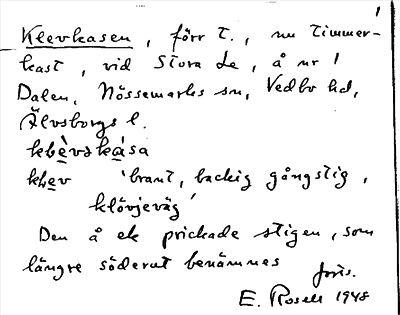 1
Klevkasen, förr t., nu timmer-
kast, vid Stora Le, å nr 1
Dalen, Nössemarks sn, Vedbo hd,
Älvsborgs l.
klèvskása
klev 'brant, backig gångstig,
klövjeväg'
Den å ek prickade stigen, som
längre söderut benämnes
E. Rosell 1948